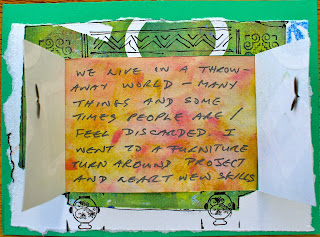 WE LIVE IN A THROW-
AWAY WORLD – MANY
THINGS AND SOME
TIMES PEOPLE ARE /
FEEL DISCARDED. I
WENT TO A FURNITURE
TURN AROUND PROJECT
AND LEARNT NEW SKILLS